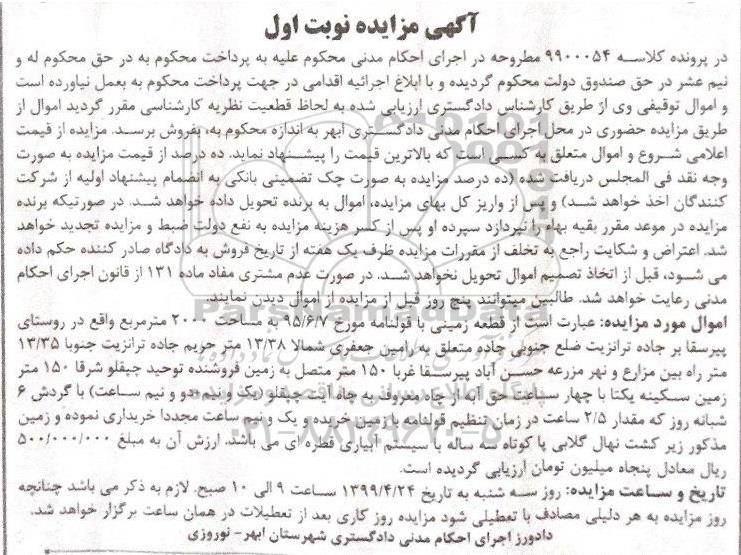 آگهی مزایده نوبت اول
در پرونده کلاسه ۹۹۰۰۰۵۴ مطروحه در اجرای احکام مدنی محکوم علیه به پرداخت محکوم به در حق محکوم له و
نیم عشر در حق صندوق دولت محکوم گردیده و با ابلاغ اجرائیه اقدامی در جهت پرداخت محکوم به بعمل نیاورده است
و اموال توقیفی وی از طریق کارشناس دادگستری ارزیابی شده به لحاظ قطعیت نظریه کارشناسی مقرر گردید اموال از
طریق مزایده حضوری در محل اجرای احکام مدنی دادگستری ابهر به اندازه محکوم به، بفروش برسد. مزایده از قیمت
اعلامی شروع و اموال متعلق به کسی است که بالاترین قیمت را پیشنهاد نماید. ده درصد از قیمت مزایده به صورت
وجه نقد فی المجلس دریافت شده (ده درصد مزایده به صورت چک تضمینی بانکی به انضمام پیشنهاد اولیه از شرکت
کنندگان اخذ خواهد شد) و پس از واریز کل بهای مزایده، اموال به برنده تحویل داده خواهد شد. در صورتیکه برنده
مزایده در موعد مقرر بقیه بهاء را نپردازد سپرده او پس از کسر هزینه مزایده به نفع دولت ضبط و مزایده تجدید خواهد
شد. اعتراض و شکایت راجع به تخلف از مقررات مزایده ظرف یک هفته از تاریخ فروش به دادگاه صادر کننده حکم داده
می شود، قبل از اتخاذ تصمیم اموال تحویل نخواهد شد. در صورت عدم مشتری مفاد ماده ۱۳۱ از قانون اجرای احکام
مدنی رعایت خواهد شد. طالبین میتوانند پنج روز قبل از مزایده از اموال دیدن نمایند.
اموال مورد مزایده: عبارت است از قطعه زمینی با قولنامه مورخ ۹۵/۶/۷ به مساحت ۲۰۰۰ مترمربع واقع در روستای
پیرسقا بر جاده ترانزیت ضلع جنوبی جاده متعلق به رامین جعفری شمالا ۱۳/۳۸ متر حریم جاده ترانزیت جنوبا ۱۳/۳۵
متر راه بین مزارع و نهر مزرعه حسن آباد پیرسقا غربا ۱۵۰ متر متصل به زمین فروشنده توحید چپقلو شرقا ۱۵۰ متر
زمین سکینه یکتا با چهار ساعت حق آبه از چاه معروف به چاه آیت چپقلو (یک و نیم+دو و نیم ساعت) با گردش ۶
شبانه روز که مقدار ۲/۵ ساعت در زمان تنظیم قولنامه با زمین خریده و یک و نیم ساعت مجددا خریداری نموده و زمین
مذکور زیر کشت نهال گلابی پا کوتاه سه ساله با سیستم آبیاری قطره ای می باشد. ارزش آن به مبلغ ۵۰۰/۰۰۰/۰۰۰
ریال معادل پنجاه میلیون تومان ارزیابی گردیده است.
تاریخ و ساعت مزایده: روز سه شنبه به تاریخ ۱۳۹۹/۴/۲۴ ساعت ۹ الی ۱۰ صبح. لازم به ذکر می باشد چنانچه
روز مزایده به هر دلیلی مصادف با تعطیلی شود مزایده روز کاری بعد از تعطیلات در همان ساعت برگزار خواهد شد.
دادورز اجرای احکام مدنی دادگستری شهرستان ابهر- نوروزی
ParsNamadData
۰۲۱-۸۸۳۴۹۶۷۰-۵